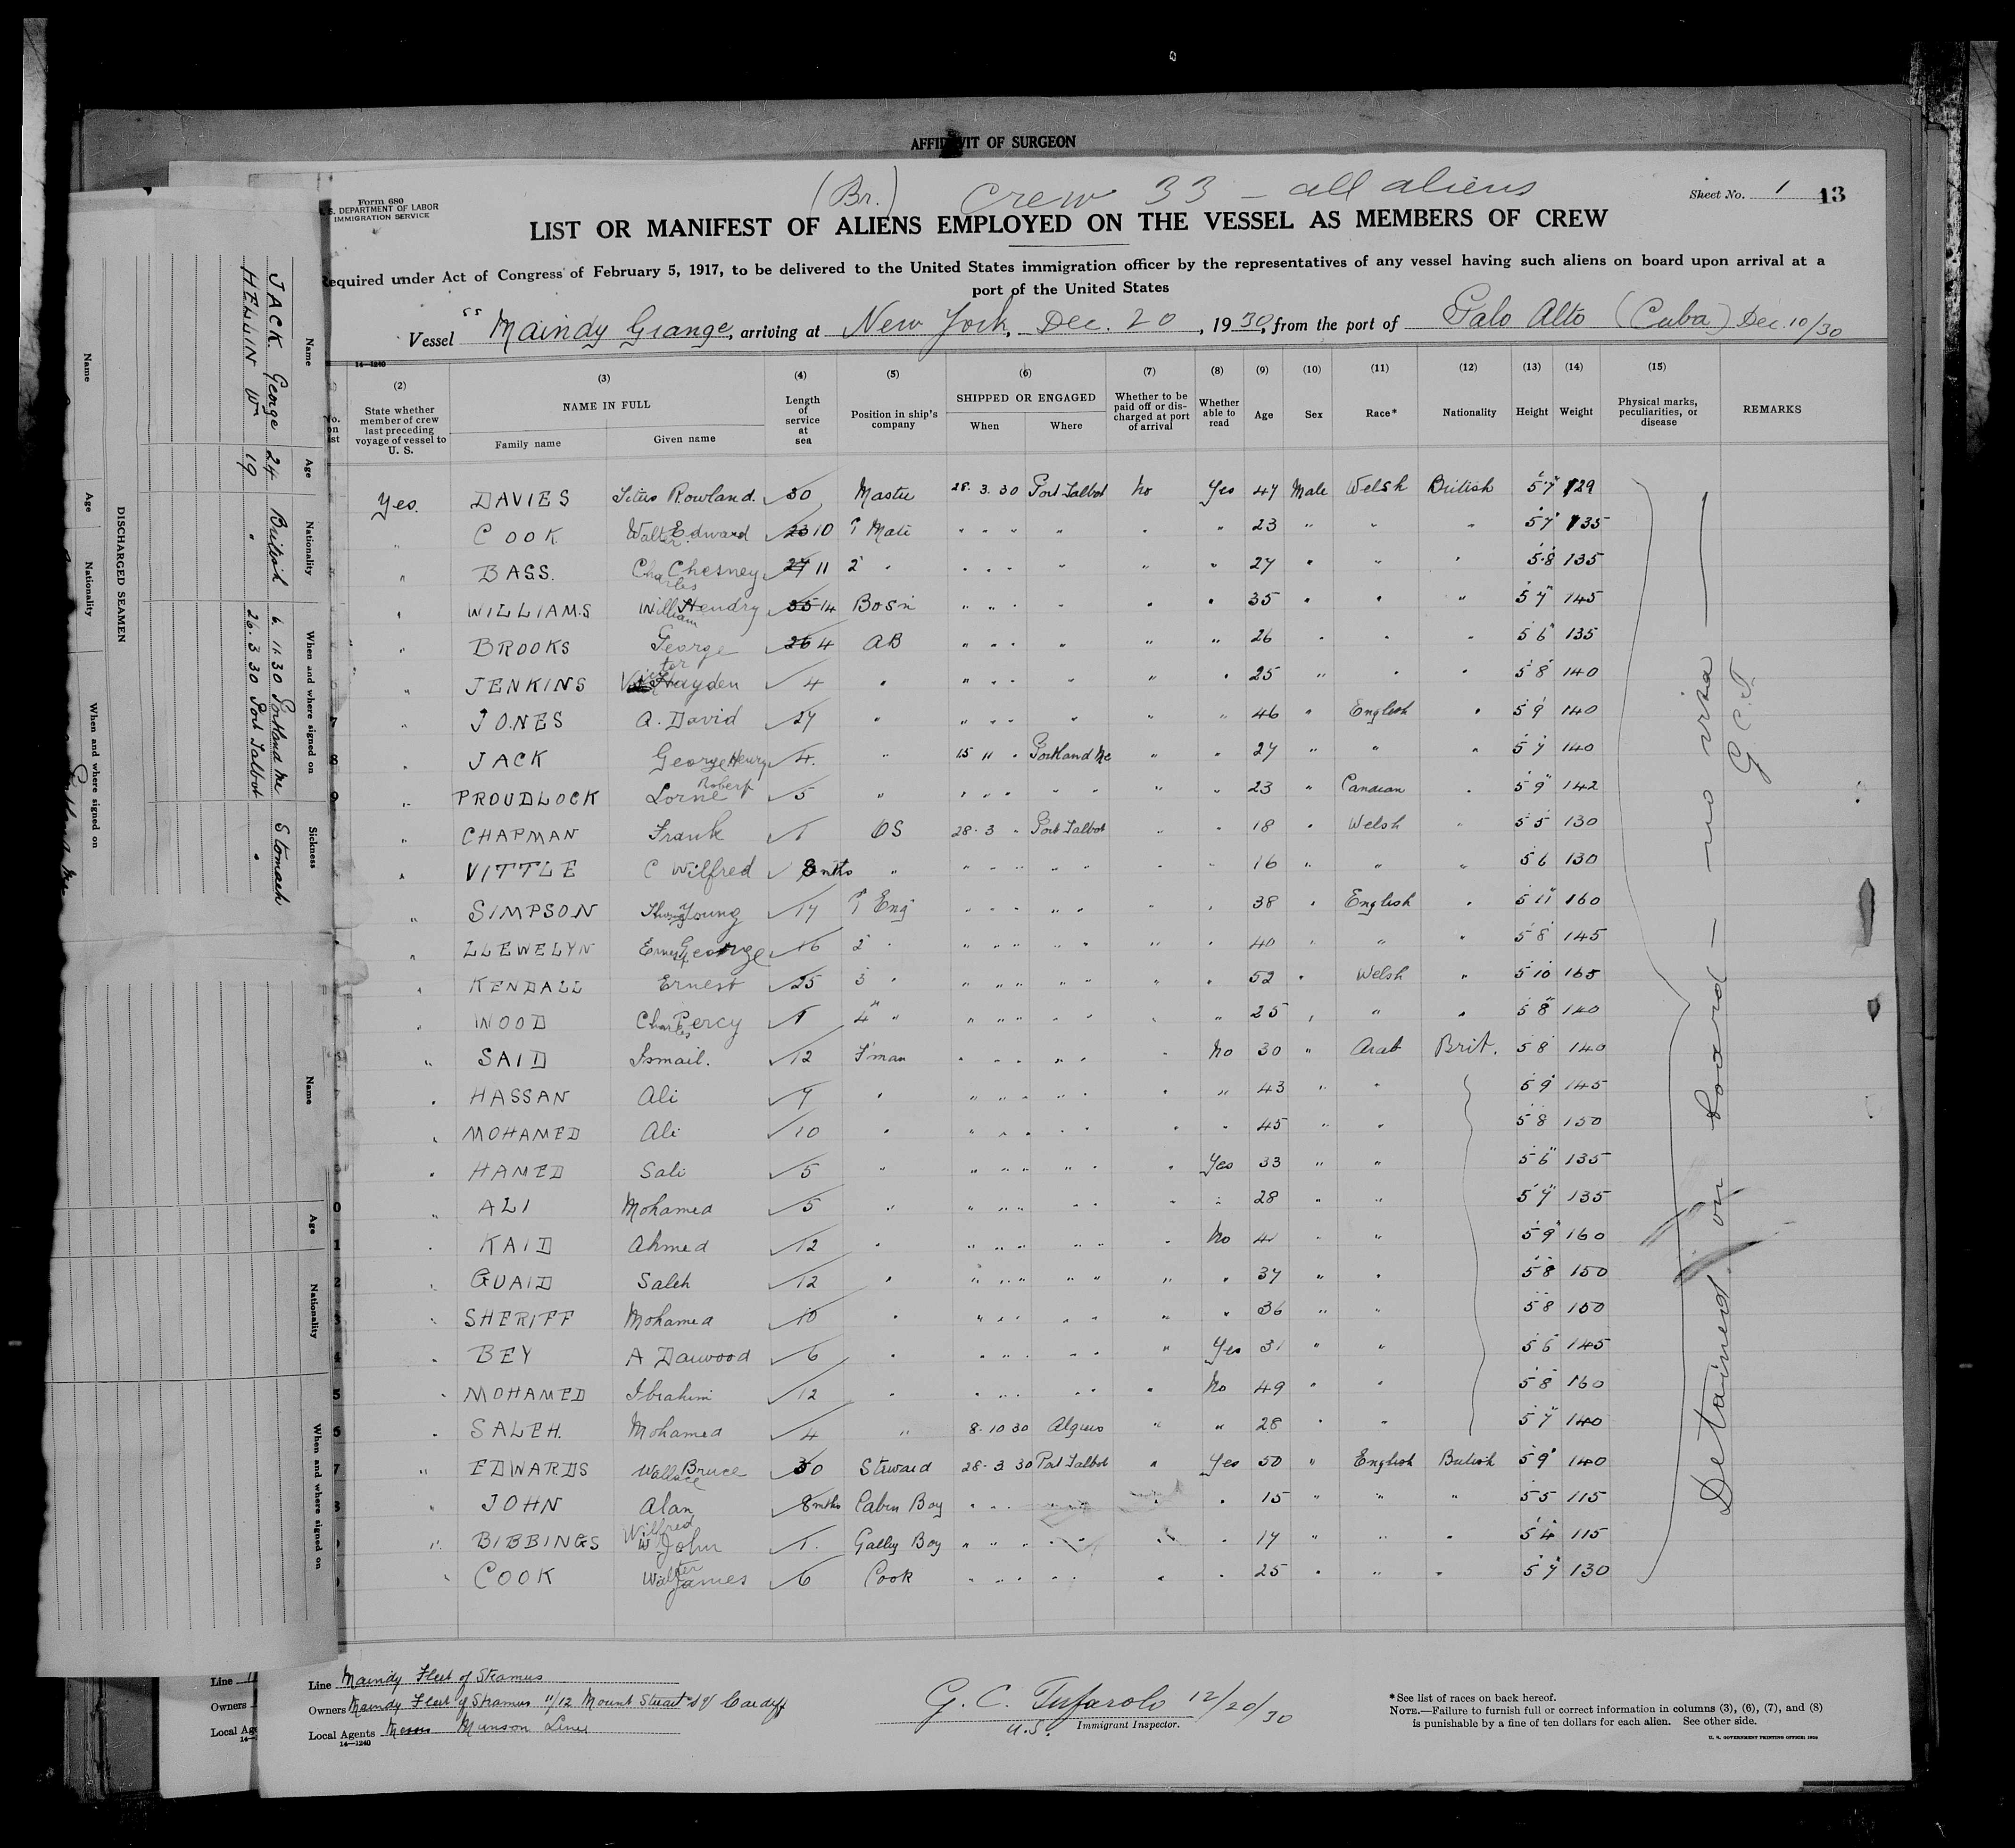 AFFIDAVIT OF SURGEON
(Br.) Crew 33 – all aliens
Form 680
U. S. DEPARTMENT OF LABOR
IMMIGRATION SERVICE
Sheet No. 1 13
LIST OR MANIFEST OF ALIENS EMPLOYED ON THE VESSEL AS MEMBERS OF CREW
Required under Act of Congress of February 5, 1917, to be delivered to the United States immigration officer by the representatives of any vessel having such aliens on board upon arrival at a
port of the United States
Vessel SS Maindy Grange, arriving at New York, Dec. 20, 1930, from the port of Palo Alto (Cuba) Dec. 10/30
14—1240
(2) (3) (4) (5) (6) (7) (8) (9) (10) (11) (12) (13) (14) (15)
No. on list
State whether member of crew last preceding voyage of vessel to U. S.
NAME IN FULL
Family name Given name
Length of service at sea
Position in ship's company
SHIPPED OR ENGAGED
When Where
Whether to be paid off or discharged at port of arrival
Whether able to read
Age Sex Race* Nationality Height Weight
Physical marks, peculiarities, or disease
REMARKS
Yes. DAVIES Titus Rowland. 30 Master 28. 3. 30 Port Talbot No Yes 47 Male Welsh British 5'7" 129
" COOK Walter Edward 23 10 1st Mate " " " " " " 23 " " " 5'7" 135
" BASS. Charles Chesney 27 11 2 " " " " " " " 27 " " " 5'8 135
" WILLIAMS William Hendry 35 14 Bosn " " " " " " 35 " " " 5'7" 145
" BROOKS George 26 4 AB " " " " " " 26 " " " 5'6" 135
" JENKINS Hayden 4 " " " " " " " 25 " " " 5'8" 140
7 " JONES A. David 27 " " " " " " " 46 " English " 5'9" 140
8 " JACK George Henry 4. " 15 11 " Portland Me " " 27 " " " 5'7" 140
9 " PROUDLOCK Lorne Robert 5 " " " " " " " " 23 " Canaian " 5'9" 142
" CHAPMAN Frank 1 OS 28. 3 " Port Talbot " " 18 " Welsh " 5'5" 130
" VITTLE C Wilfred 8 mths " " " " " " " " 16 " " " 5'6 130
" SIMPSON Thomas Young 17 1st Eng " " " " " " " 38 " English " 5'11" 160
" LLEWELYN Ernest George 16 2 " " " " " " " " 40 " " " 5'8" 145
" KENDALL Ernest 25 3 " " " " " " " " 52 " Welsh " 5'10" 165
" WOOD Charles Percy 1 4" " " " " " " " " 25 " " " 5'8" 140
" SAID Ismail. 12 F'man " " " " " " No 30 " Arab Brit. 5'8" 140
" HASSAN Ali 7 " " " " " " " " 43 " " 5'9" 145
" MOHAMED Ali 10 " " " " " " " " 45 " " 5'8 150
" HAMED Sali 5 " " " " " " " Yes 33 " " 5'6" 135
0 " ALI Mohamed 5 " " " " " " " " 28 " " 5'7" 135
1 " KAID Ahmed 12 " " " " " " " No 41 " " 5'9" 160
2 " GUAID Saleh 12 " " " " " " " " 37 " " 5'8" 150
3 " SHERIFF Mohamed 10 " " " " " " " " 36 " " 5'8 150
4 " BEY A Dawood 6 " " " " " " " Yes 31 " " 5'6 145
5 " MOHAMED Ibrahim 12 " " " " " " " No 49 " " 5'8 160
6 " SALEH. Mohamed 4 " 8. 10 30 Algiers " " 28 " " 5'7" 140
7 " EDWARDS Wallace Bruce 30 Steward 28. 3 30 Port Talbot " Yes 50 " English British 5'9" 140
8 " JOHN Alan 8 mths Cabin Boy " " " " " " " 15 " " " 5'5 115
" BIBBINGS Wilfred W John 1. Galley Boy " " " " " " " 17 " " " 5'4" 115
" COOK Walter James 6 Cook " " " " " " " 25 " " " 5'7" 130
Detained on board – no visa
G C T
Line Maindy Fleet of Steamers
Owners Maindy Fleet of Steamers 11/12 Mount Stuart Sq Cardiff
Local Agents Messrs Munson Line
14—1240
G. C. Tufarolo 12/20/30
U.S. Immigrant Inspector.
*See list of races on back hereof.
NOTE.—Failure to furnish full or correct information in columns (3), (6), (7), and (8)
is punishable by a fine of ten dollars for each alien. See other side.
U. S. GOVERNMENT PRINTING OFFICE: 1929
Line
Owners
Local Age
14—1
DISCHARGED SEAMEN
Name Age Nationality When and where signed on Sickness
JACK George 24 British 6. 11. 30 Portland Me Stomach
HELLIN Wm 19 " 26. 3 30 Port Talbot "
Name Age Nationality When and where signed on
Name Age Nationality When and where signed on